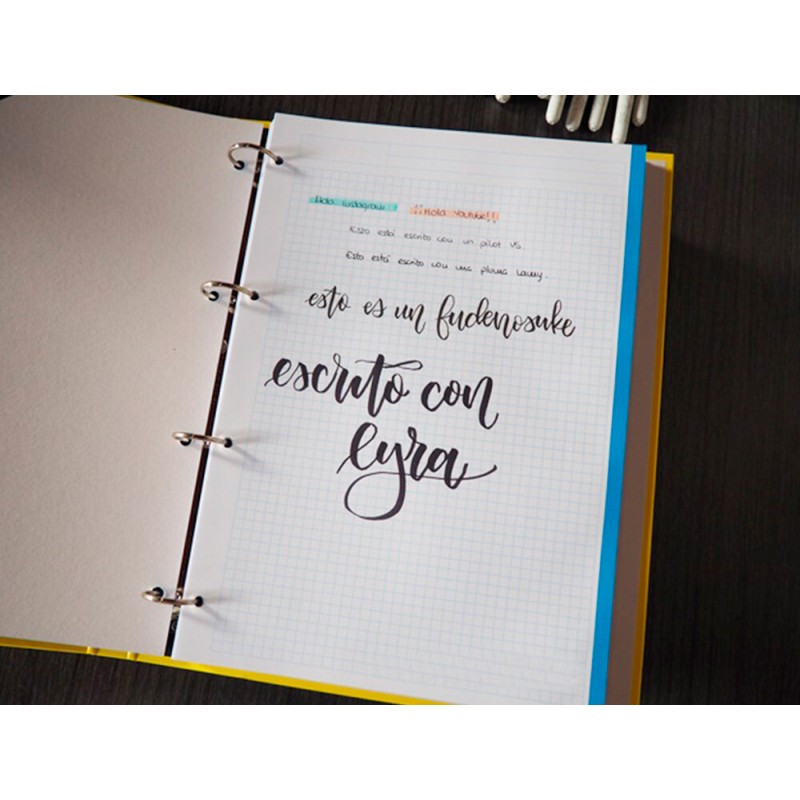 Hola instagram! ¡¡Hola youtube!!
Esto está escrito con un pilot V5.
Esto está escrito con una pluma Lamy.
esto es un fudenosuke
escrito con
lyra